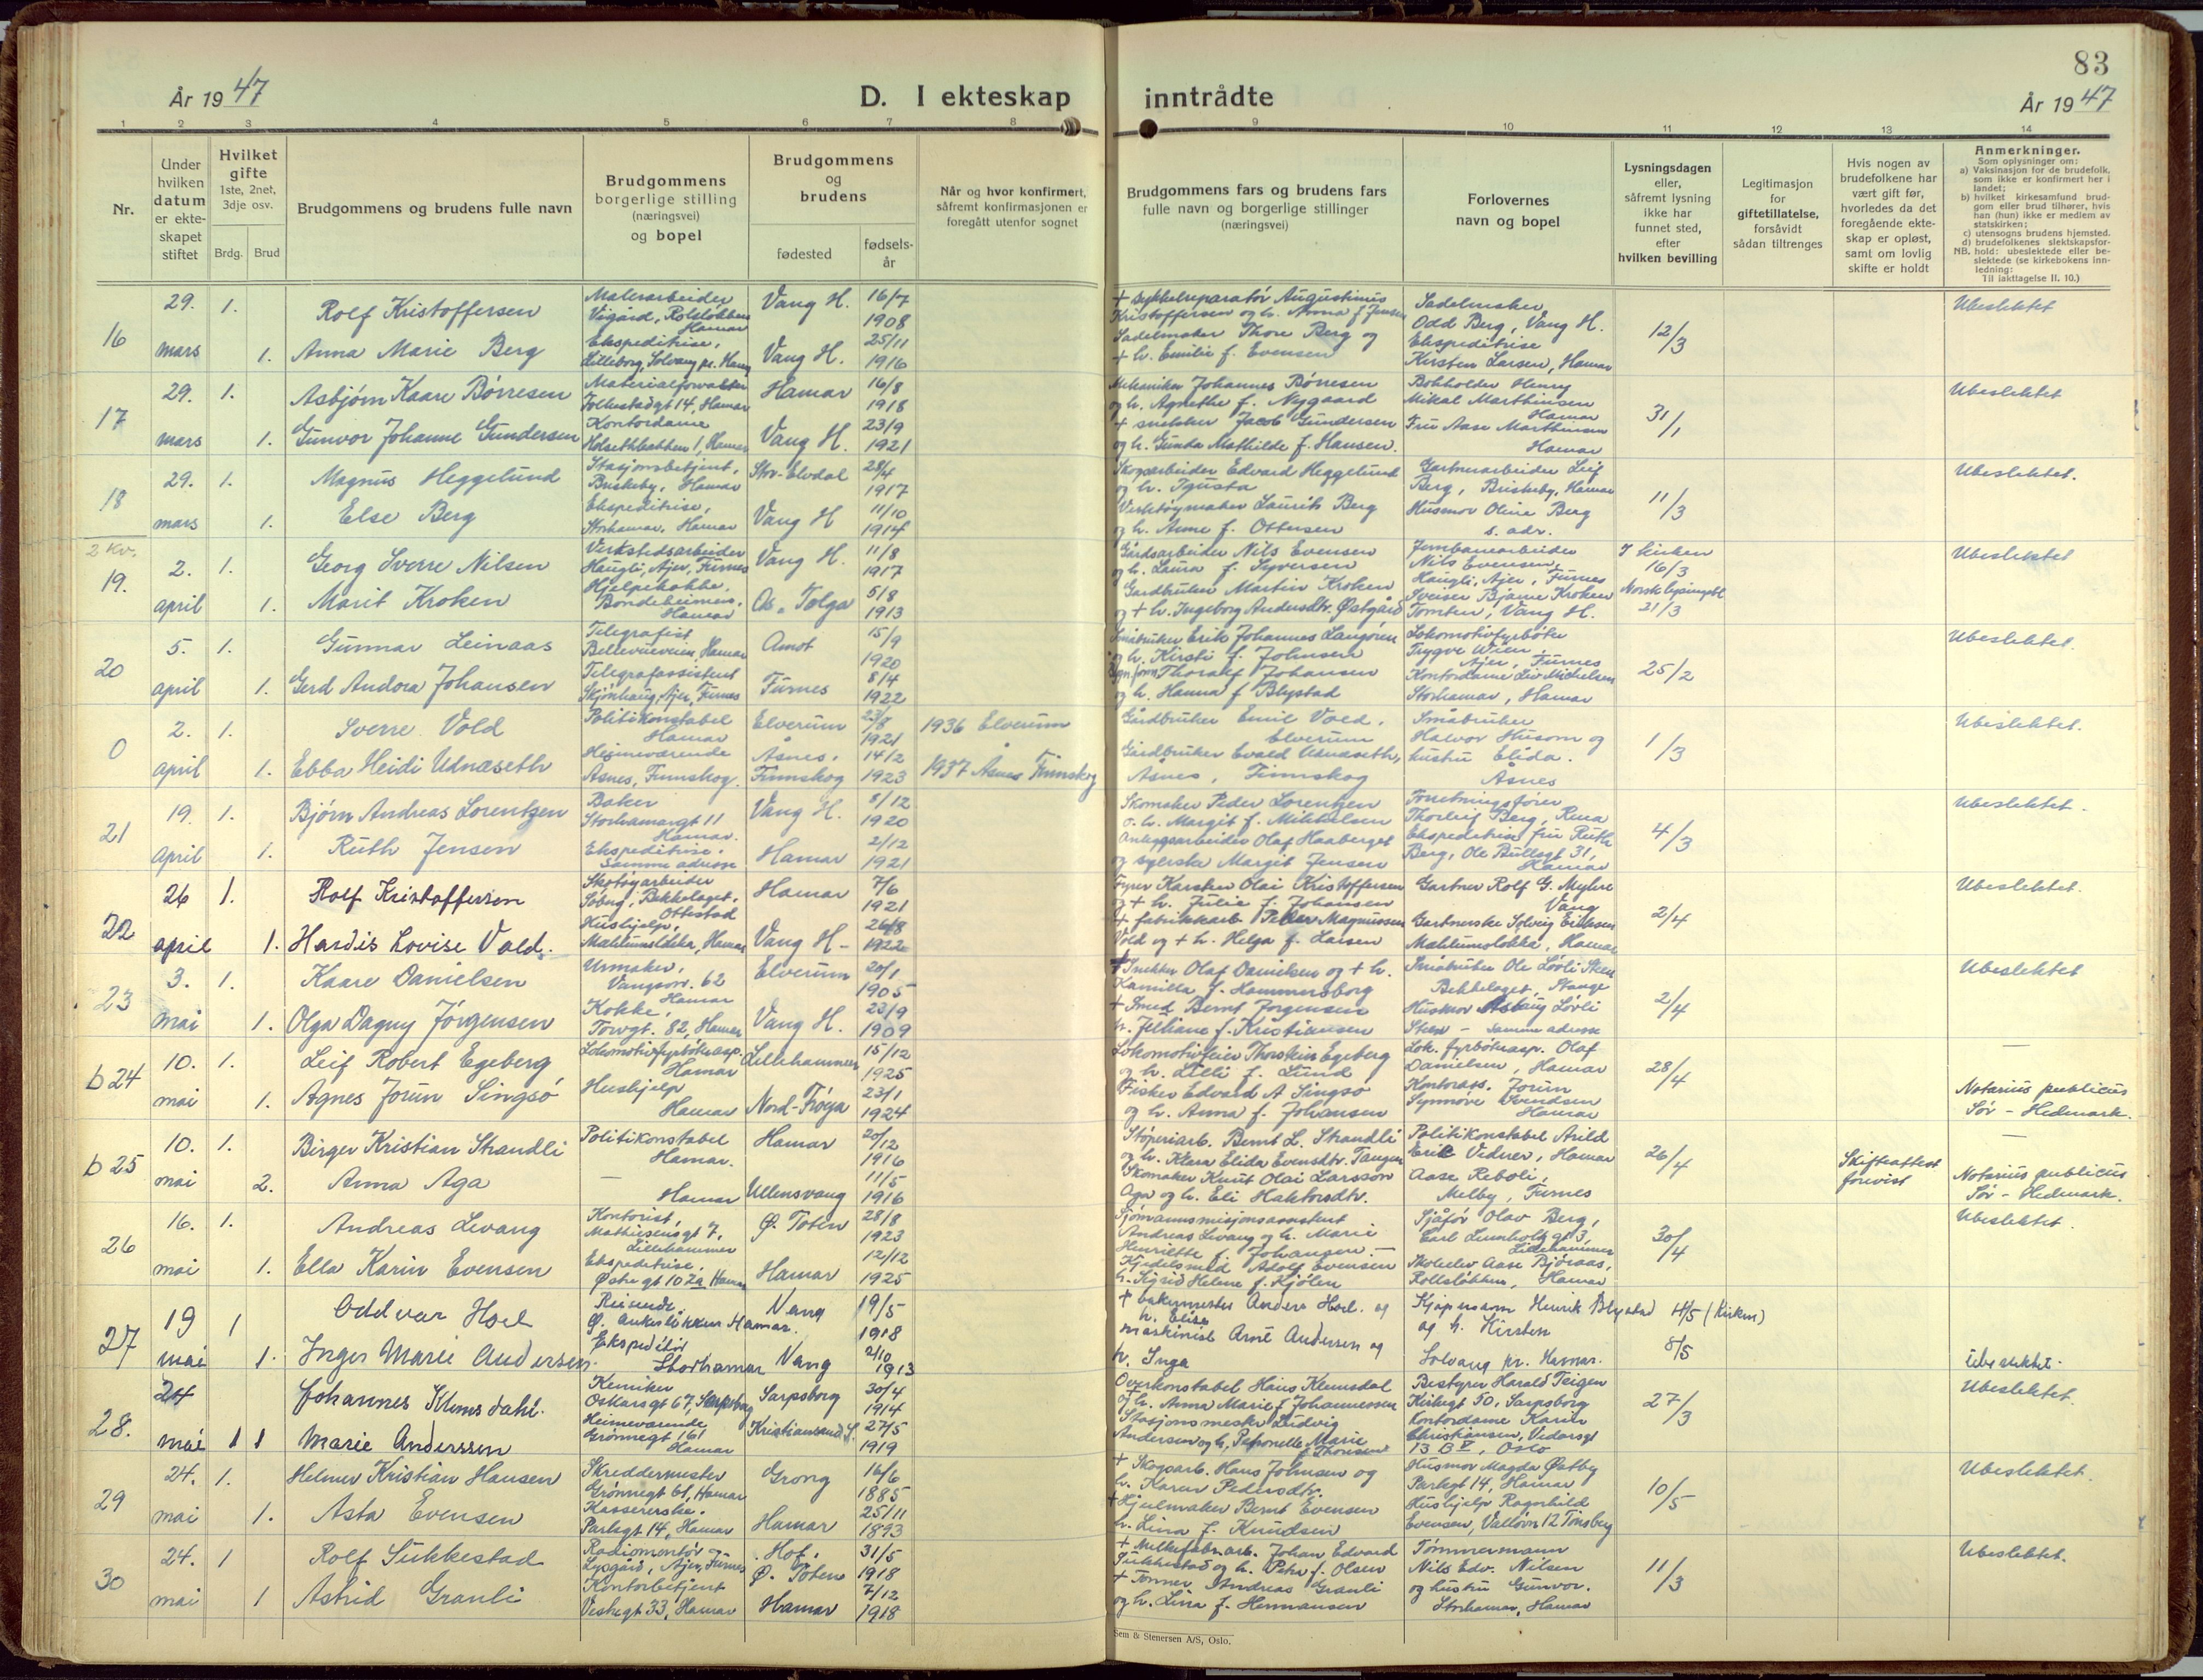 83
År 1947
D. I ekteskap inntrådte
År 1947
1 2 3 4 5 6 7 8 9 10 11 12 13 14
Nr.
Under hvilken datum er ekteskapet stiftet
Hvilket gifte
1ste, 2net, 3dje osv.
Brdg. Brud
Brudgommens og brudens fulle navn
Brudgommens borgerlige stilling (næringsvei) og bopel
Brudgommens og brudens
fødested
fødselsår
Når og hvor konfirmert, såfremt konfirmasjonen er foregått utenfor sognet
Brudgommens fars og brudens fars fulle navn og borgerlige stillinger (næringsvei)
Forlovernes navn og bopel
Lysningsdagen eller, såfremt lysning ikke har funnet sted, efter hvilken bevilling
Legitimasjon for giftetillatelse, forsåvidt sådan tiltrenges
Hvis nogen av brudefolkene har vært gift før, hvorledes da det foregående ekteskap er opløst, samt om lovlig skifte er holdt
Anmerkninger.
Som oplysninger om:
a) Vaksinasjon for de brudefolk, som ikke er konfirmert her i landet;
b) hvilket kirkesamfund brudgom eller brud tilhører, hvis han (hun) ikke er medlem av statskirken;
c) utensogns brudens hjemsted.
d) brudefolkenes slektskapsforhold: ubeslektede eller beslektede (se kirkebokens innledning:
NB.
Til iakttagelse II. 10.)
16 29. mars 1. Rolf Kristoffersen Malerarbeider Vigård, Rolsløkken Hamar Vang H. 16/7 1908
1. Anna Marie Berg Ekspeditrise, Lilleborg, Solvang pr. Hamar Vang H. 25/11 1916
+ sykkelreparatör Augustinus Kristoffersen og h. Anna f. Jensen
Sadelmaker Thore Berg og + h. Emilie f. Evensen
Sadelmaker Odd Berg, Vang H.
Ekspeditrise Kirsten Larsen, Hamar
12/3 Ubeslektet
17 29. mars 1. Asbjørn Kaare Børresen Materialforvalter Folkestadgt 14, Hamar Hamar 16/8 1918
1. Gunvor Johanne Gundersen Kontordame Holsethbakken 1, Hamar Vang H. 23/9 1921
Mekaniker Johannes Børresen og h. Agnethe f. Nygaard
+ snekker Jacob Gundersen og h. Gunda Mathilde f. Hansen.
Bokholder Henry Mikal Marthinsen Hamar
Fru Aase Marthinsen Hamar
31/1 Ubeslektet
18 29. mars 1. Magnus Heggelund Stasjonsbetjent, Briskeby, Hamar Stor-Elvdal 28/4 1917
1. Else Berg Ekspeditrise, Storhamar, Hamar Vang H 11/10 1914
Skogsarbeider Edvard Heggelund og h.
Verktøymaker Laurits Berg og h. Anne f. Ottersen
Gartnerarbeider Leif Berg, Briskeby, Hamar
Husmor Oline Berg s. adr.
11/3 Ubeslektet.
2 Kv.
19. 2. april 1. Georg Sverre Nilsen Verkstedsarbeider Haugli, Ajer, Furnes Vang H. 11/8 1917
1. Marit Kroken Hjelpekokke, Bondeheimen, Hamar Os, Tolga 5/8 1913
Gårdsarbeider Nils Evensen og h. Laura f. Syversen
Gardbruker Martin Kroken og + h. Ingeborg Andersdtr. Østgård
Jernbanearbeider Nils Evensen, Haugli, Ajer, Furnes
Sveiser Bjarne Kroken Tomten, Vang H.
I kirken 16/3 Norsk lysingsbl. 21/3 Ubeslektet
20 5. april 1. Gunnar Leinaas Telegrafist Bellevueveien, Hamar Åmot 15/9 1920
1. Gerd Andora Johansen Telegrafassistent Skjønhaug, Ajer, Furnes Furnes 8/4 1922
Småbruker Erik Johannes Langøren og h. Kirsti f. Johnsen
Thoralf Johansen og h. Hanna f Blystad
Lokomotivfyrbøter Trygve Wien, Ajer, Furnes
Kontordame Liv Michelsen Storhamar, Hamar
25/2 Ubeslektet.
0 2. april 1. Sverre Vold Politikonstabel Hamar Elverum 23/8 1921 1936 Elverum
1. Ebba Heidi Udnæseth Heimeværende Åsnes, Finnskog. Åsnes, Finnskog 14/2 1923 1937 Åsnes Finnskog
Gårdbruker Emil Vold, Elverum
Gårdbruker Evald Udnæseth, Åsnes, Finnskog
Småbruker Halvor Husom og hustru Elida. Åsnes
1/3 Ubeslektet.
21 19. april 1. Bjørn Andreas Lorentzen Baker Storhamargt 11 Hamar. Vang H. 8/12 1920
1. Ruth Jensen Ekspeditrise, Samme adresse Hamar 2/12 1921
Skomaker Peder Lorentzen o. h. Margit f. Mikkelsen
Anleggsarbeider Olaf Haaberget og syerske Margit Jensen
Forretningsfører Thorleif Berg, Rena
Ekspeditrise fru Ruth Berg, Ole Bullsgt 31, Hamar
4/3 Ubeslektet.
22 26 april 1. Rolf Kristoffersen Skotøyarbeider Søberg, Bekkelaget, Ottestad Hamar 7/6 1921
1. Hardis Lovise Vold. Hushjelp, Mæhlumsløkka, Hamar Vang H- 26/8 1922
Fyrer Karsten Olai Kristoffersen og + h. Julie f. Johansen
+ fabrikkarb. Peder Magnussen Vold og + h. Helga f. Larsen
Gartner Rolf G. Myhre Vang
Gartnerske Solveig Eriksen Mæhlumsløkka, Hamar
2/4 Ubeslektet.
23 3. mai 1. Kaare Danielsen Urmaker, Vangsv. 62 Hamar Elverum 20/1 1905
1. Olga Dagny Jørgensen Kokke, Torvgt. 82, Hamar Vang H. 23/9 1909
+ Snekker Olaf Danielsen og + h. Kamilla f. Hammersborg
+ Smed Bernt Jørgensen h. Jelliane f. Kristiansen
Småbruker Ole Løvli Steen Bekkelaget, Stange
Husmor Løvli Steen - samme adresse
2/4 Ubeslektet
b 24 10. mai 1. Leif Robert Egeberg Lokomotivfyrbøterasp. Hamar Lillehammer 15/12 1925
1. Agnes Jorun Singsø Hushjelp Hamar Nord-Frøya 23/1 1924
Lokomotivfører Thorstein Egeberg og h. Lilli f. Lund
Fisker Edvard A Singsø og h. Anna f. Johansen
Lok. fyrbøterasp. Olaf Danielsen, Hamar
Kontorass. Jorun Synnøve Svendsen Hamar
28/4 — Notarius publicus Sør-Hedmark.
b 25 10. mai 1. Birger Kristian Strandli Politikonstabel Hamar. Hamar 20/12 1916
2. Anna Aga — Hamar Ullensvang 11/5 1916
Støperiarb. Bernt L. Strandli og h. Klara Elida Evensdtr. Tangen
Skomaker Knut Olai Larsson Aga og h. Eli Haktorsdtr.
Politikonstabel Arild Erik Viderer, Hamar
Aase Reboli, Melby, Furnes
26/4 Skifteattest forevist — Notarius publicus Sør-Hedmark.
26 16. mai 1. Andreas Levang Kontorist, Mathiesensgt 7, Lillehammer Ø. Toten 28/8 1923
1. Ella Karin Evensen Ekspeditrise, Østregt 102a Hamar Hamar 12/12 1925
Sjømannsmisjonsassistent Andreas Levang og h. Marie Henriette f. Johansen.-
Kjedelsmed Adolf Evensen h. Sigrid Helene f. Kjølen
Sjåfør Olav Berg, Carl Lumholtz gt 3, Lillehammer
Skoleelev Aase Bjøraas, Rollsløkken, Hamar
30/4 Ubeslektet.
27 19 mai 1 Oddvar Hoel Reisende. Ø. Ankerløkken Hamar. Vang 19/5 1918
1. Inger Marie Andersen. Ekspeditør Storhamar Vang 2/10 1913
+ bakermester Anders Hoel. og h. Elise
maskinist Arne Andersen og h. Inga
Kjøpmann Henrik Blystad og h. Kirsten Solvang pr. Hamar.
4/5 (Kirken) 8/5 Ubeslektet.
28. 24 mai 1 Johannes Klemsdahl. Kemiker Oskarsgt 67, Sarpsborg Sarpsborg 30/4 1914
1 Marie Anderssen Heimeværende Grønnegt 161 Hamar Kristiansand S. 27/5 1919
Overkonstabel Hans Klemsdal og h. Anna Marie f Johannessen
Stasjonsmester Ludvig Andersen og h. Petronelle Marie f. Thorisen
Bestyrer Harald Teigen Kirkegt 50, Sarpsborg
Kontordame Karin Christiansen, Vidarsgt 13 B V, Oslo
27/3 Ubeslektet.
29 24. mai 1. Helmer Kristian Hansen Skreddermester Grønnegt 61, Hamar Grong 16/6 1885
1. Asta Evensen Kassererske. Parkgt 14, Hamar Hamar 25/11 1893
+ Skogsarb. Hans Johnsen og h. Karen Pedersdtr.
+ Hjulmaker Bernt Evensen h. Lina f. Knudsen
Husmor Magda Østby Parkgt 14, Hamar
Hushjelp Ragnhild Evensen, Valløvn 12 Tønsberg
10/5 Ubeslektet.
30 24. mai 1 Rolf Sukkestad Radiomontør Lysgård, Ajer, Furnes Hof, Ø. Toten 31/5 1918
1 Astrid Granli Kontorbetjent Vestregt 33, Hamar Hamar 7/12 1918
+ Melkefabr.arb. Johan Edvard Sukkestad og h. Petra f. Olsen
+ Tømmer Andreas Granli og h. Lina f. Hermansen
Tømmermann Nils Edv. Nilsen og hustru Gunvor. Storhamar, Hamar
11/3 Ubeslektet.
Sem & Stenersen A/S, Oslo.